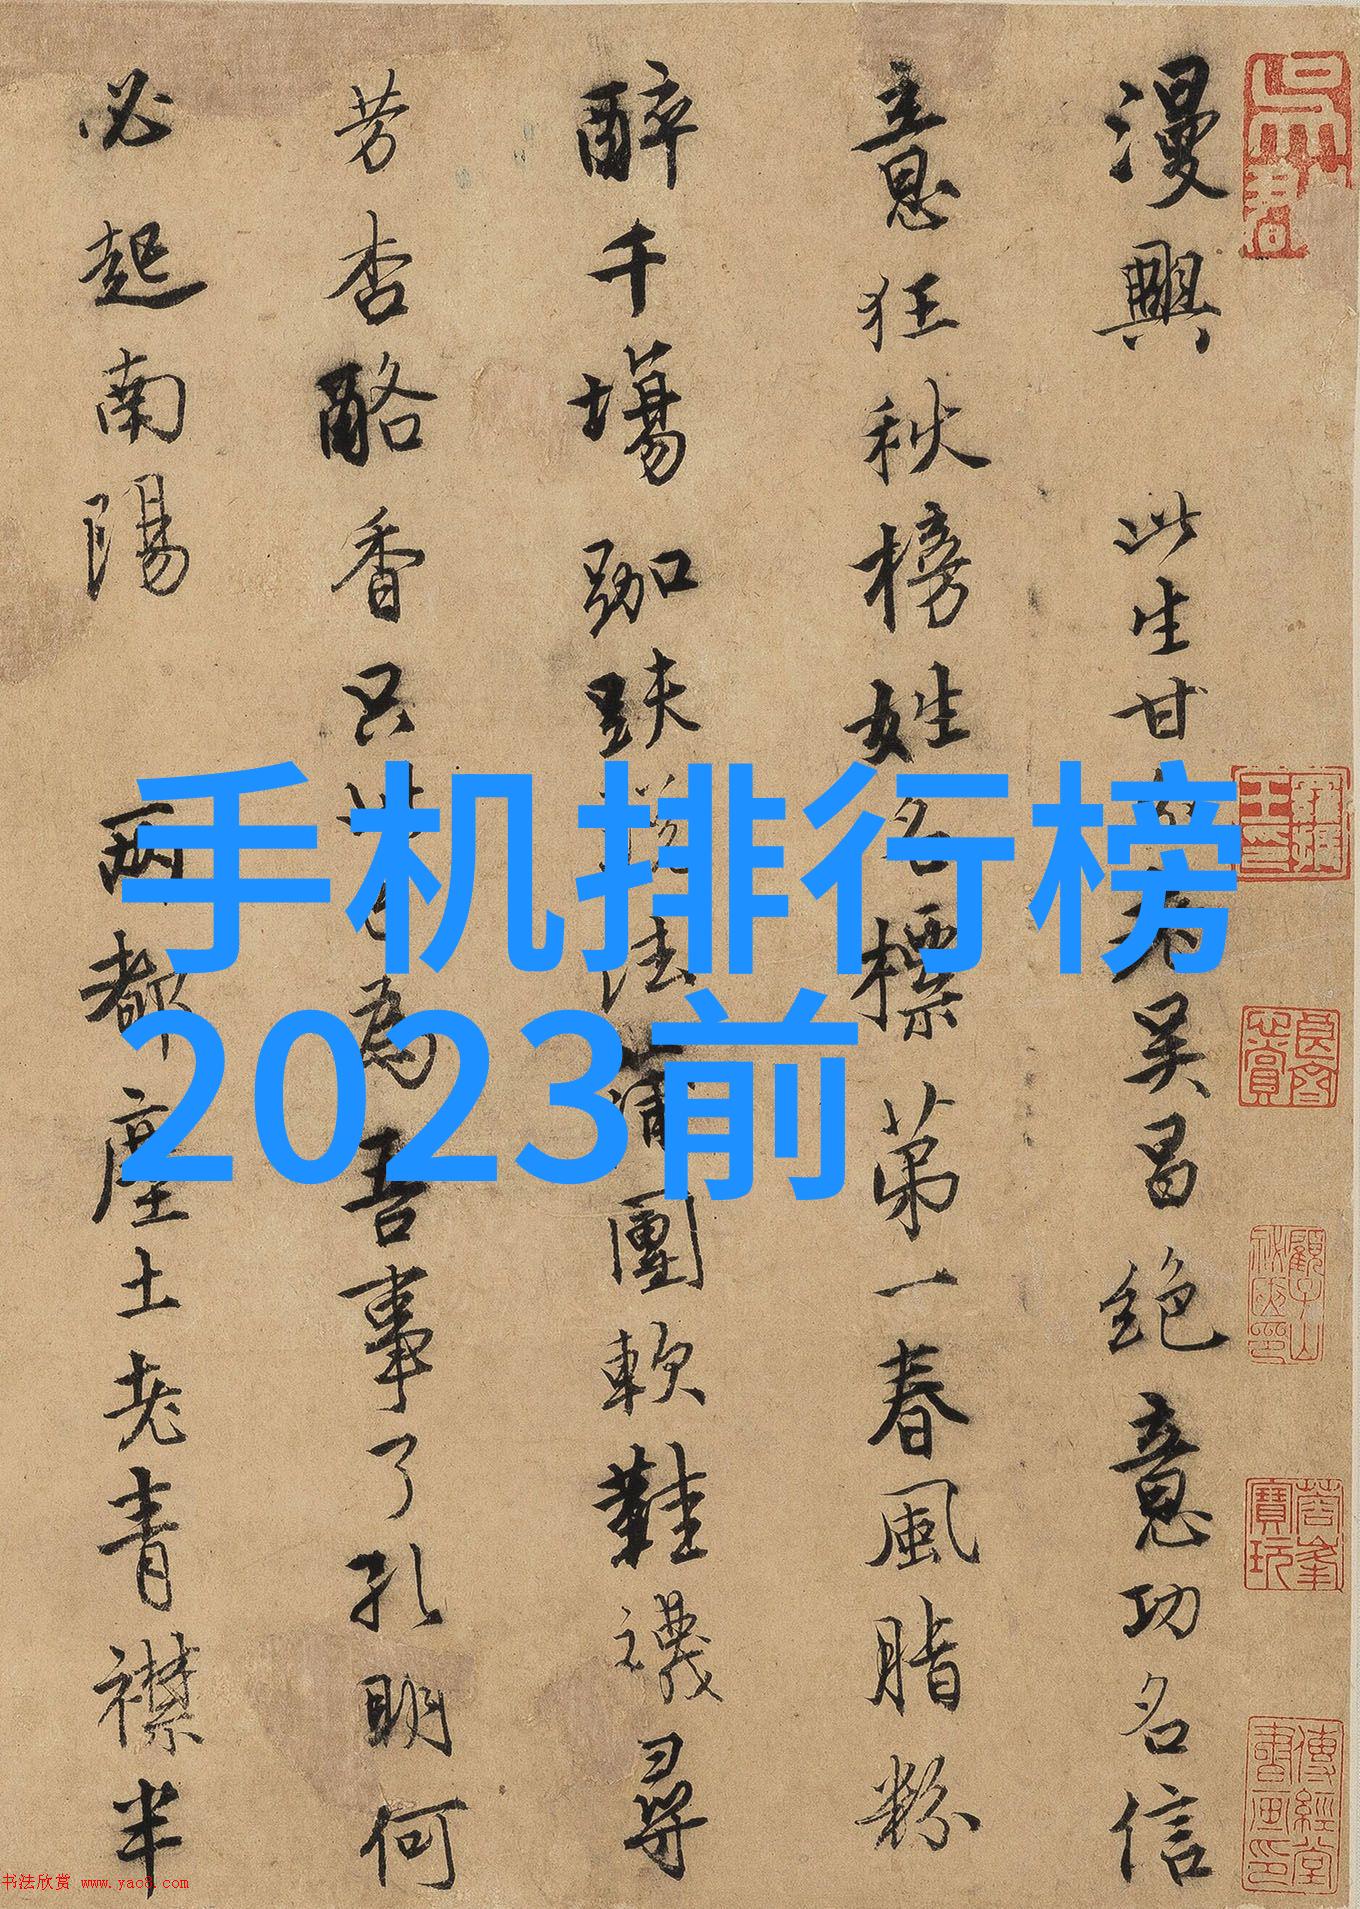 漫興 此生甘分老吴昌絶意功名信
意狂秋榜姓名標第一春風脂粉
醉千場跏趺説法蒲團軟鞋襪尋
芳杏酪香只此便為吾事了孔明何
必起南陽 兩都塵土老青襟半
手机排行榜
2023前
书法欣赏 www.yac8.com